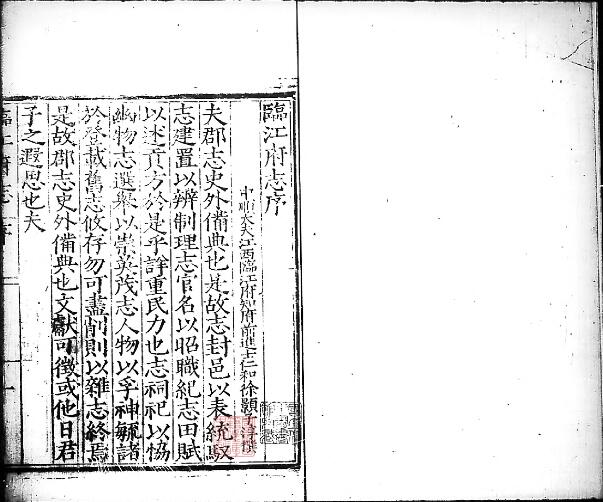 臨江府志序
中順大夫江西臨江府知府前進士仁和徐顥子淳撰
夫郡志史外備典也是故志封邑以表統馭
志建置以辨制理志官名以昭職紀志田賦
以述貢方於是乎詳重民力也志祠祀以恊
幽物志選舉以崇英茂志人物以孚神毓諸
於登載舊志攸存勿可盡削則以雜志終焉
是故郡志史外備典也文獻可徵或他日君
子之遐思也夫
臨江府志 序